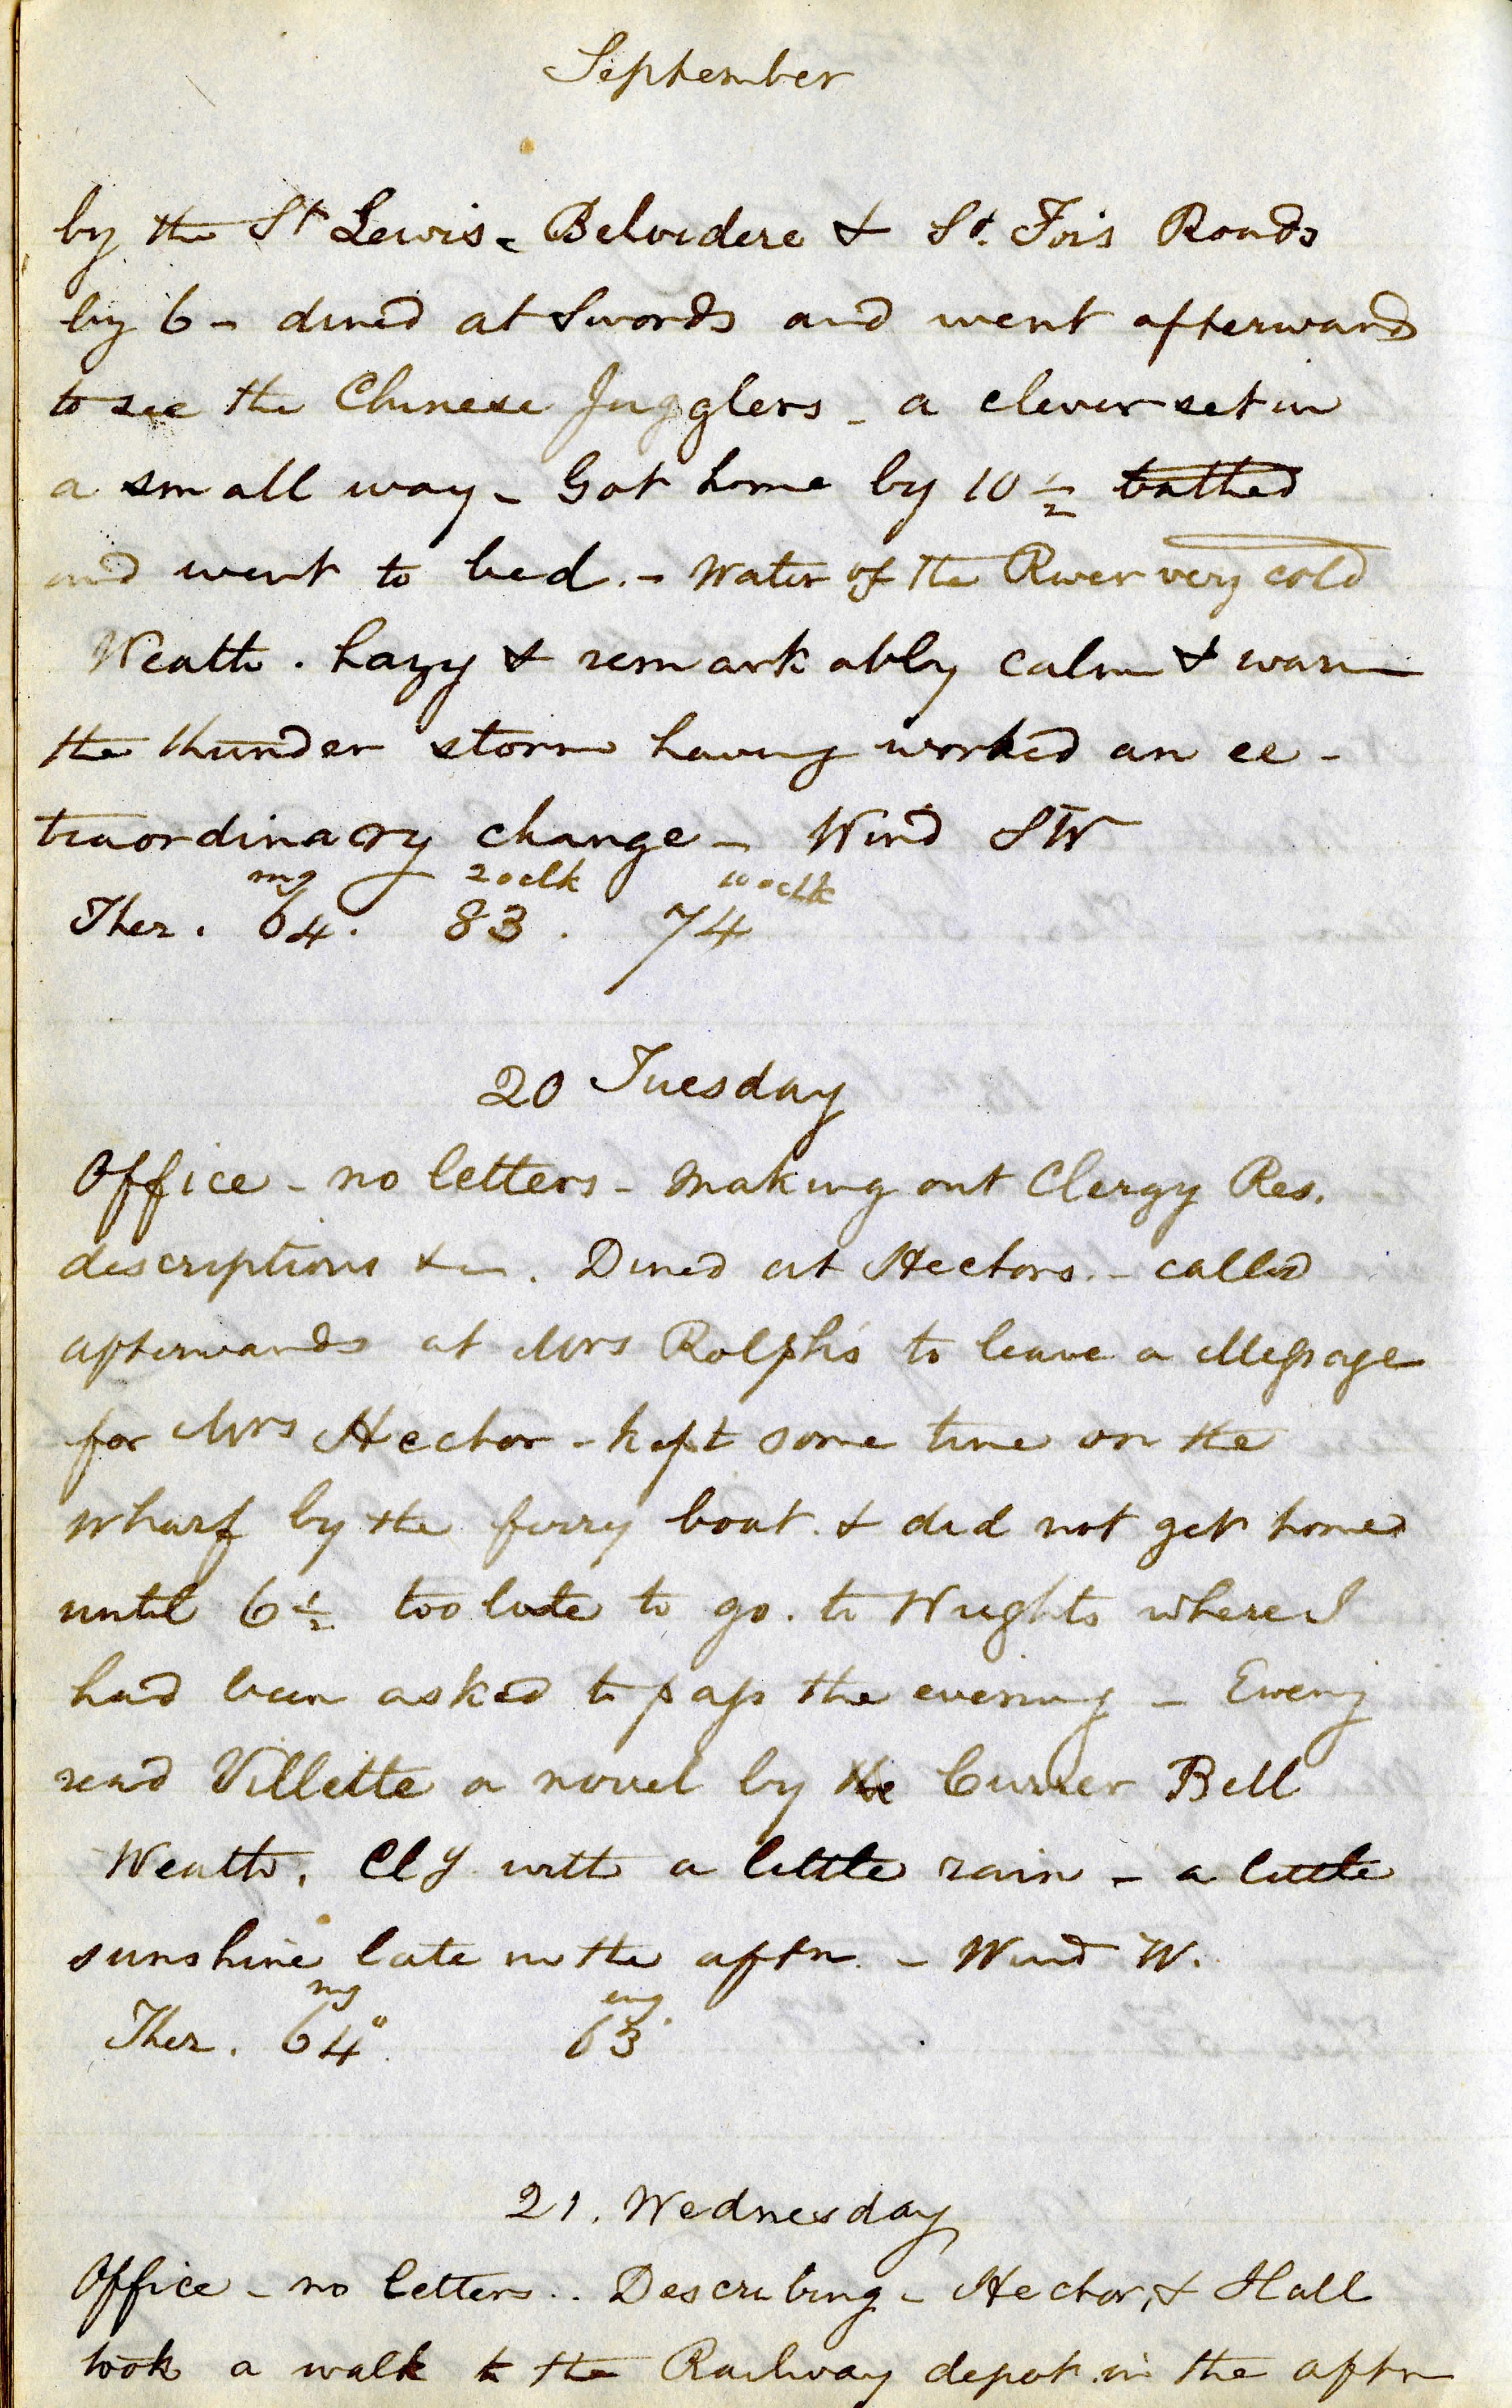 September
by the St Lewis - Belvidere & St. Fois Roads
by 6 - dined at Swords and went afterwards
to see the Chinese Jugglers - a clever set in
a small way - Got home by 10 1/2 bathed
and went to bed. - Water of the River very cold
Weathr. hazy & remarkably calm & warm
the thunder storm having worked an ex-
traordinary change - Wind SW
mg 2 oclk 10 oclk
Ther. 64. 83. 74
20 Tuesday
Office - no letters - making out Clergy Res.
descriptions &c. Dined at Hectors. - called
afterwards at Mrs Rolph's to leave a Message
for Mrs Hector - kept some time on the
wharf by the ferry boat. & did not get home
until 6 1/2 too late to go. to Wrights where I
had been asked to pass the evening - Eveng
read Villette a novel by Currer Bell
Weathr. Cly with a little rain - a little
sunshine late in the aftn. - Wind W.
mg eng
Ther. 64° 63°
21. Wednesday
Office - no letters.. Describing - Hector, & Hall
took a walk to the Railway depot in the aftn